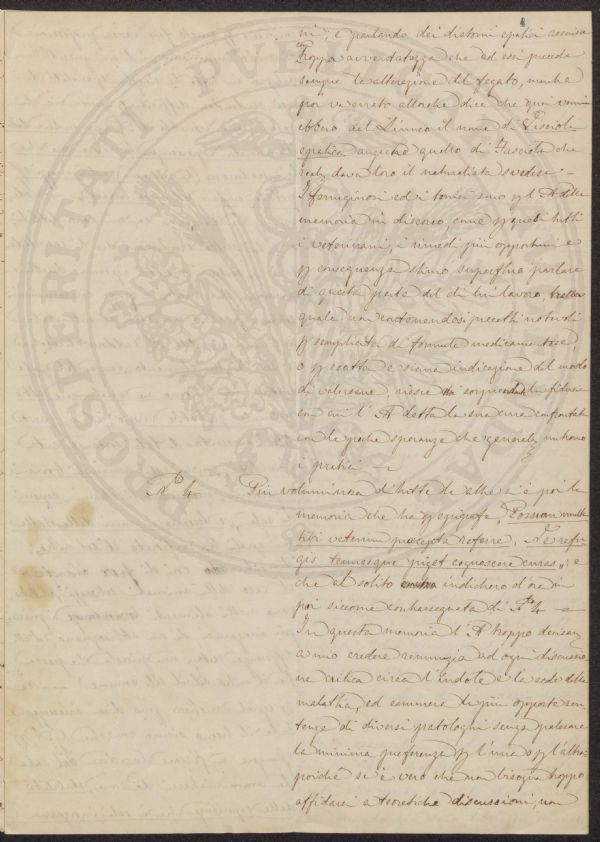 4
ni, e parlando dei distomi epatici ravvisa
con troppa avvedutezza che ad essi precede
sempre la alterazione del fegato, benchè
poi va errato allorchè dice che quei vermi
ebbero dal Linneo il nome di
epatica anzichè quello di Fasciola che
dava loro il naturalista svedese. -
I ferruginosi ed i tonici sono pl A della
memoria in discorso, come quasi tutti
i veterinari, i rimedi più opportuni e
p conseguenza stimo superfluo parlare
di questa parte del di lui lavoro, nella
quale non contenendosi precetti notevoli
p semplicità di formule medicamentose
o p esatta e sicura indicazione del modo
di valersene, riesce la fiducia
con cui l'A detta la sua cura confrontata
con le poche speranze che nutrono
i pratici -
No 4 Più voluminosa di tutte le altre si è poi la
memoria che ha p epigrafe "Possum mul
tibi veterum præcepta referre, Ni refu
gis tenuesque piget cognoscere curas": e
che al solito indicherò d'ora in
poi siccome contrassegnata di No 4 -
In questa memoria l'A troppo
a mio credere rinunzia ad ogni discussio
ne critica circa l'indole e la sede della
malattia, ed enumera le più opposte sen
tenze di diversi patologhi senza palesare
la minima preferenza p l'una o p l'altra
poichè se è vero che non bisogna troppo
affidarsi a teoretiche discussioni, non
PROSPERITATI PUBLICAE